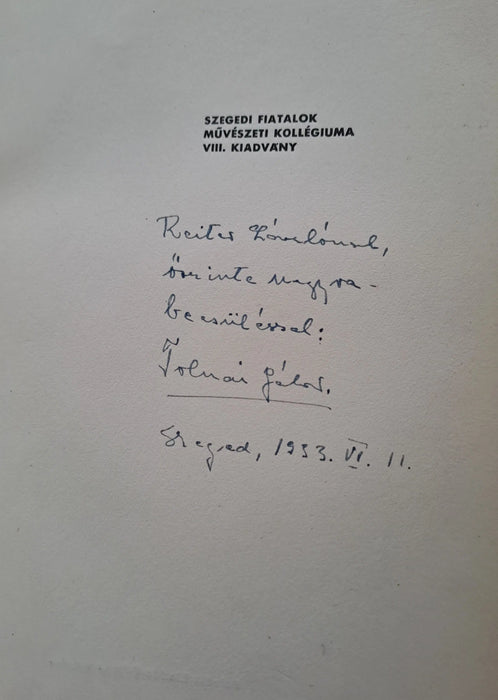 SZEGEDI FIATALOK
MŰVÉSZETI KOLLÉGIUMA
VIII. KIADVÁNY
Reiter Lászlónak,
őszinte nagyra-
becsüléssel:
Tolnai Gábor.
Szeged, 1933. VI. 11.